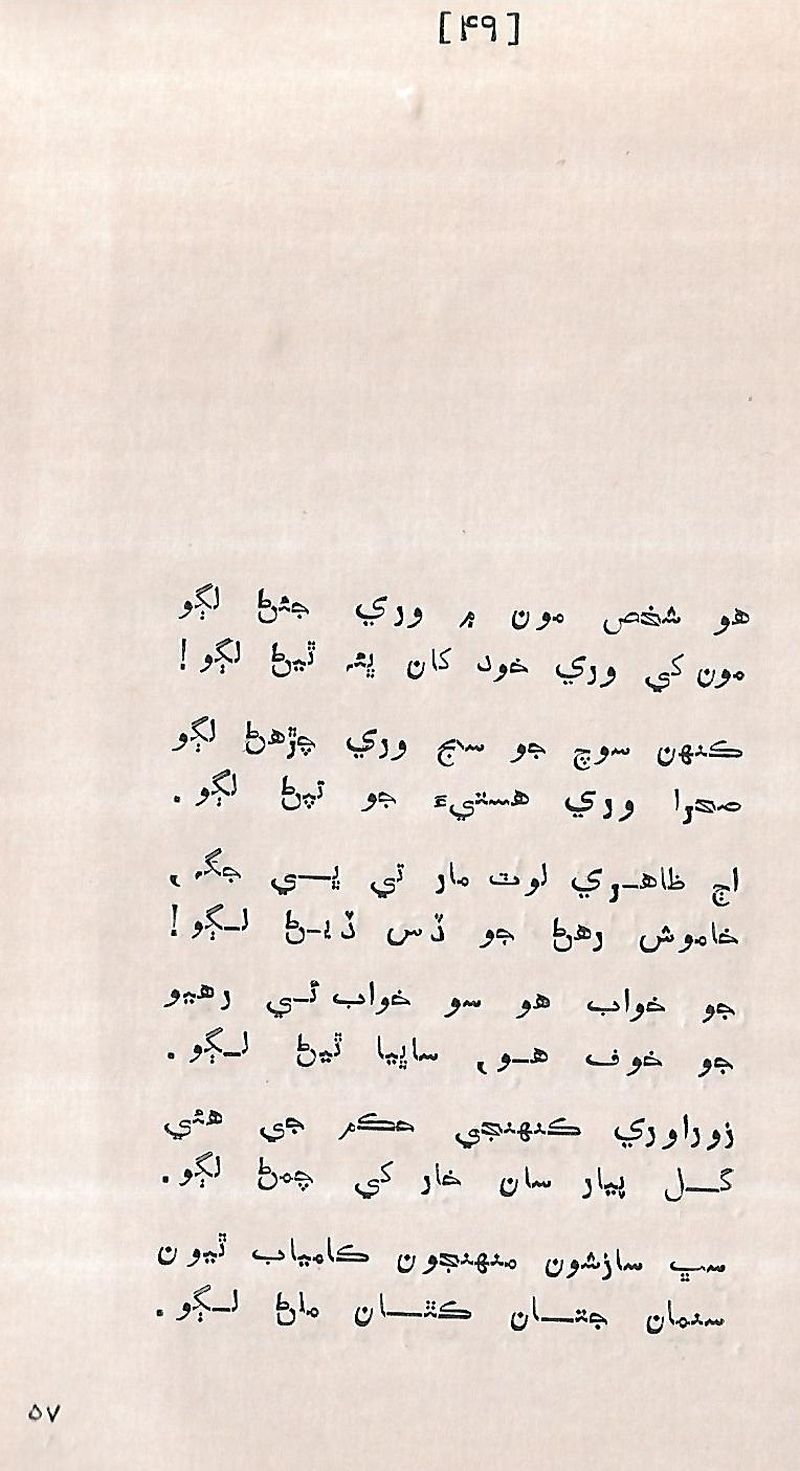 [۴۹]
هو شخص مون ۾ وري جئڻ لڳو
مون کي وري خود کان ڀئه ٿيڻ لڳو!
ڪنهن سوچ جو سج وري چڙهڻ لڳو
صحرا وري هستيءَ جو تپڻ لڳو.
اڄ ظاهري لوت مار تي ٻي جڳه،
خاموش رهڻ جو ڏس ڏيڻ لڳو!
جو خواب هو سو خواب ئي رهيو
جو خوف هو، ساڀيا ٿيڻ لڳو.
زوراوري ڪنهنجي حڪم جي هئي
گل پيار سان خار کي چمڻ لڳو.
سڀ سازشون منهنجون ڪامياب ٿيون
سنمان جتان ڪٿان ماڻ لڳو.
۵۷